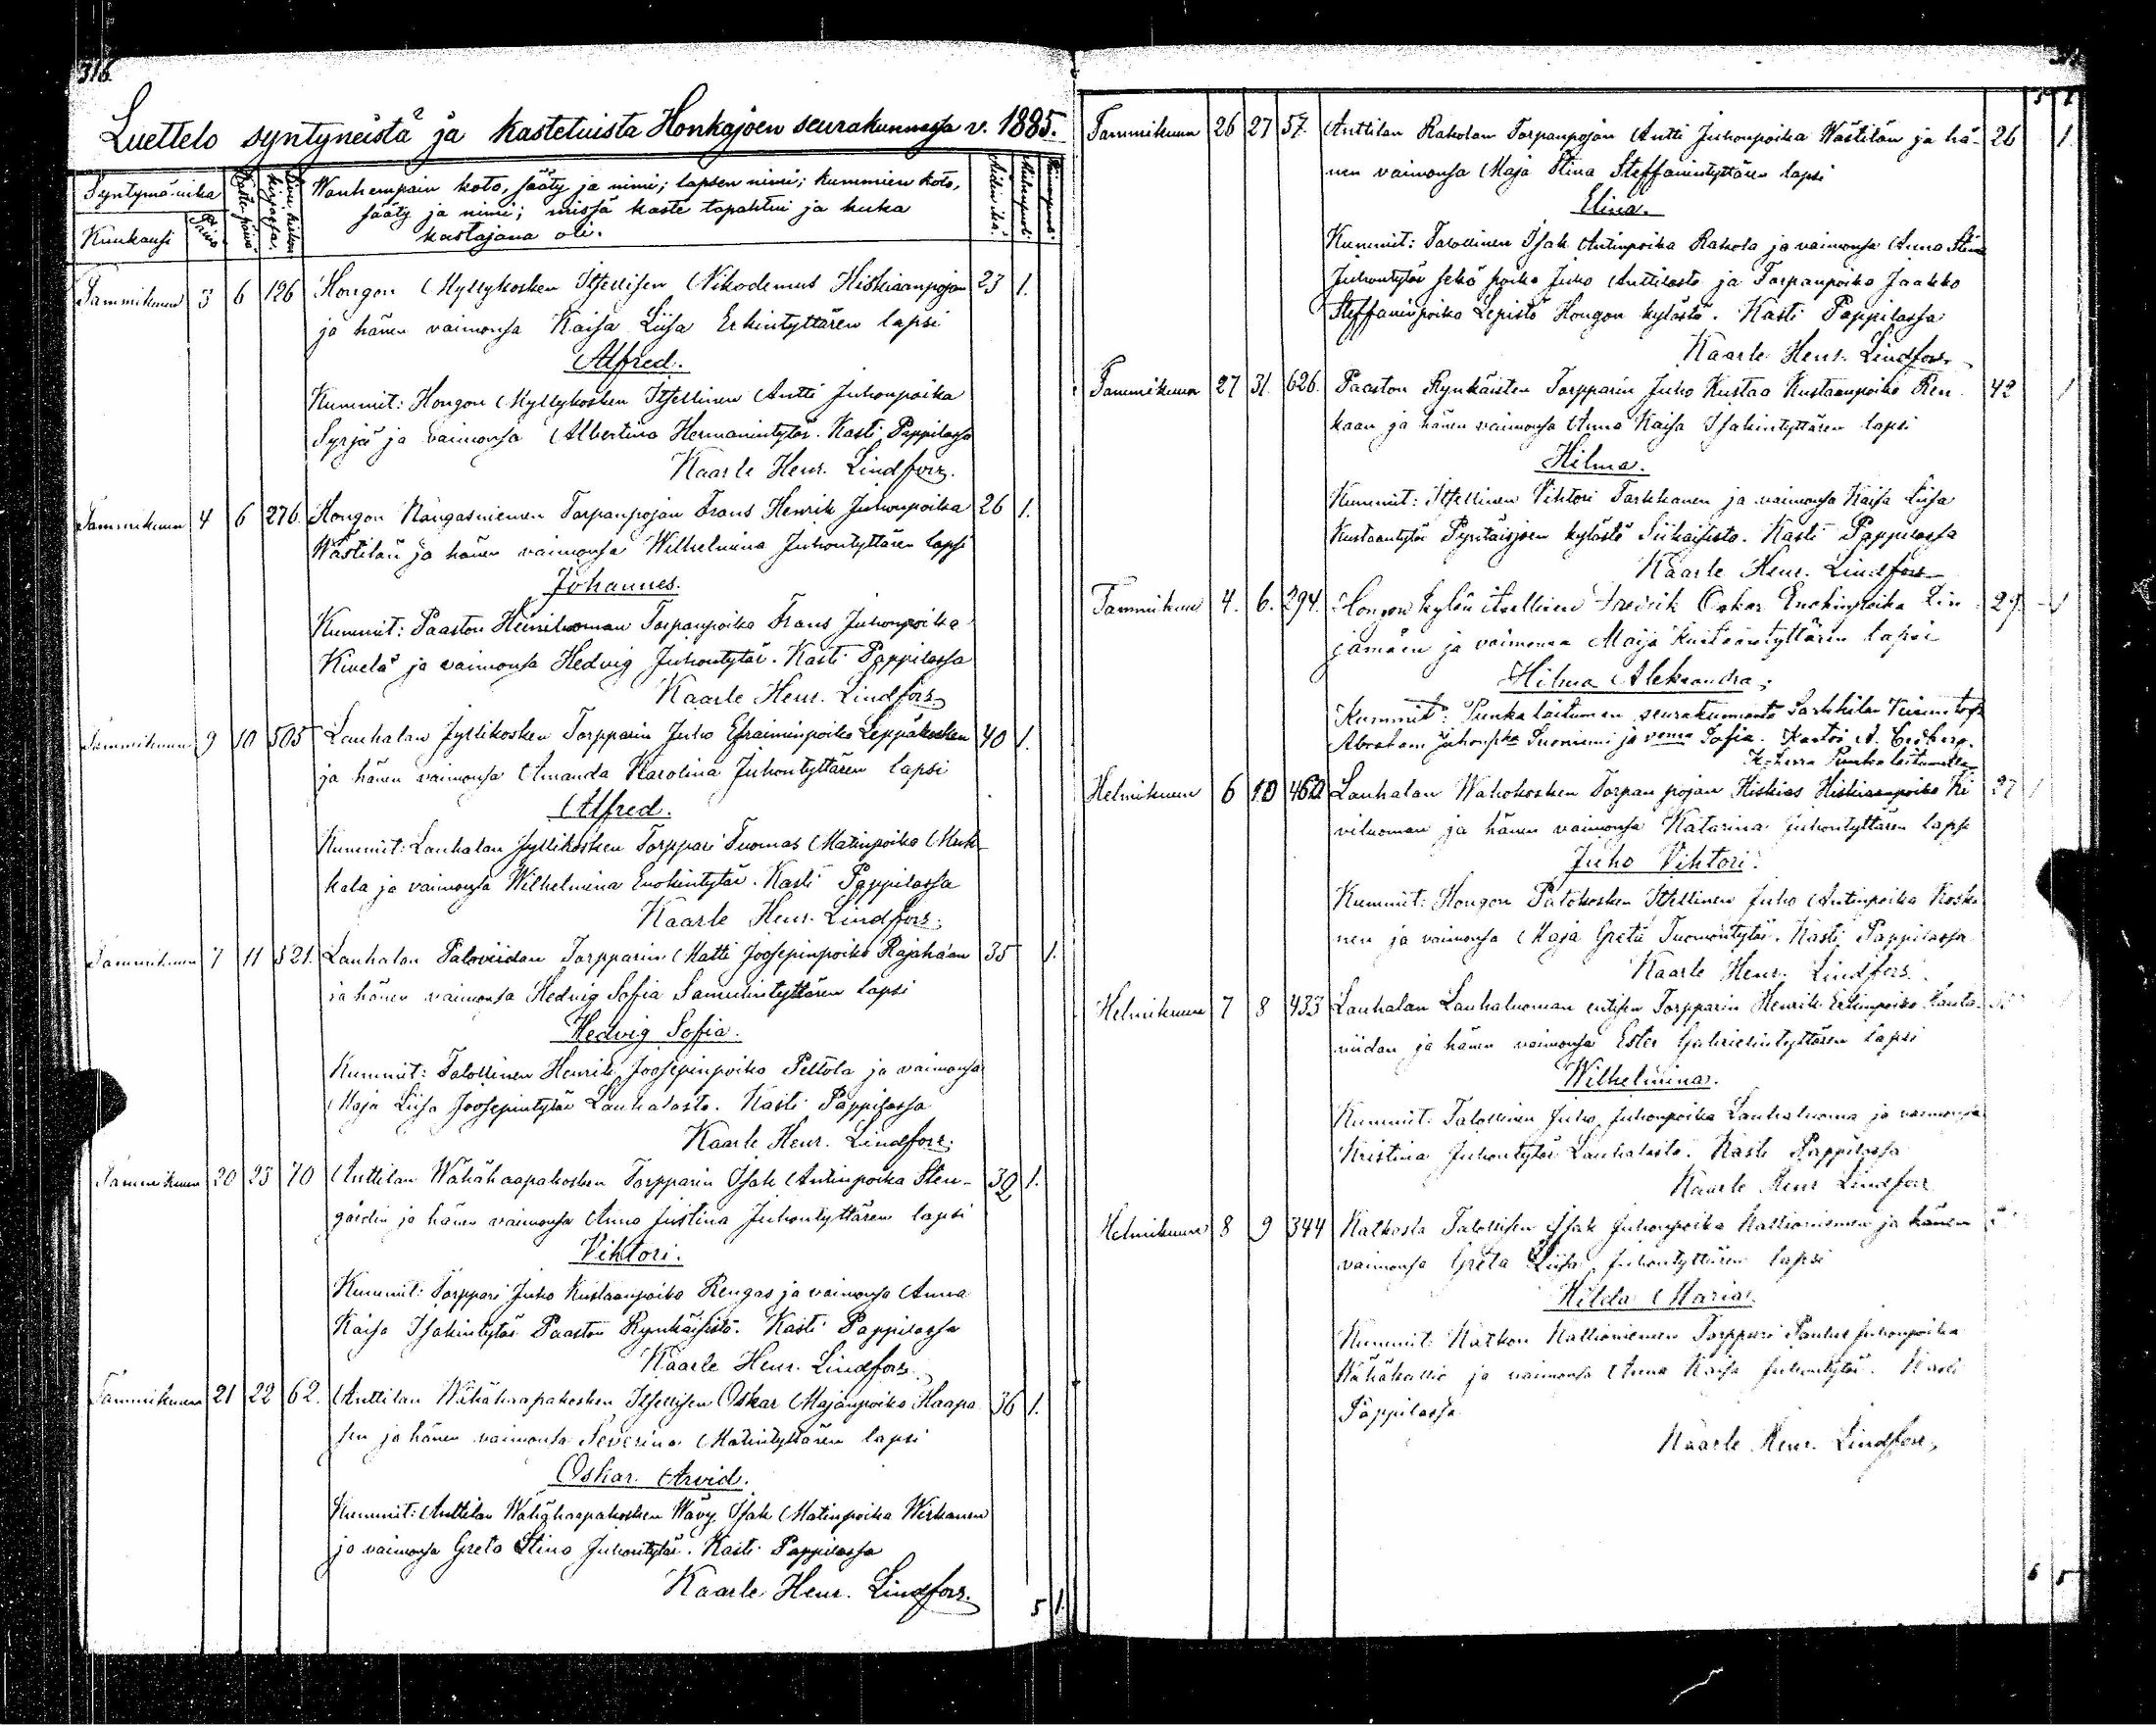 316.
Luettelo syntyneistä ja kastetuista Honkajoen seurakunnassa v. 1885.
Syntymä-aika
Kuukausi
Päivä
Kaste-päivä
Sivu kirkon kirjassa.
Wanhempain koto, sääty ja nimi; lapsen nimi; kummien koto,
sääty ja nimi; missä kaste tapahtui ja kuka
kastajana oli.
Äidin ikä.
Miehenpuoli
Waimonpuoli
Tammikuun 3 6 126 Hongon Myllykosken Itsellisen Nikodemus Hiskiaanpojan 23 1.
ja hänen vaimonsa Kaisa Liisa Erkintyttären lapsi
Alfred.
Kummit: Hongon Myllykosken Itsellinen Antti Juhonpoika
Syrjä ja vaimonsa Albertina Hermanintytär. Kasti Pappilassa
Kaarle Henr. Lindfors.
Tammikuun 4 6 276. Hongon Kangasniemen Torpanpojan Frans Henrik Juhonpoika 26 1.
Wästilän ja hänen vaimonsa Wilhelmina Juhontyttären lapsi
Johannes.
Kummit: Paaston Heiniluoman Torpanpoika Frans Juhonpoika
Kivelä ja vaimonsa Hedvig Juhontytär. Kasti Pappilassa
Kaarle Henr. Lindfors.
Tammikuun 9 10 505 Lauhalan Jyllikosken Torpparin Juho Efraiminpoika Leppäkosken 40 1.
ja hänen vaimonsa Amanda Karolina Juhontyttären lapsi
Alfred.
Kummit: Lauhalan Jyllikosken Torppari Tuomas Matinpoika Muk-
kala ja vaimonsa Wilhelmina Enokintytär. Kasti Pappilassa
Kaarle Henr. Lindfors.
Tammikuun 7 11 521. Lauhalan Paloviidan Torpparin Matti Joosepinpoika Rajahaan 35 1.
ja hänen vaimonsa Hedvig Sofia Samulintyttären lapsi
Hedvig Sofia.
Kummit: Talollinen Henrik Joosepinpoika Peltola ja vaimonsa
Maja Liisa Joosepintytär Lauhalasta. Kasti Pappilassa
Kaarle Henr. Lindfors.
Tammikuun 20 25 70 Anttilan Wähähaapakosken Torpparin Isak Antinpoika Sten- 39 1.
gårdin ja hänen vaimonsa Anna Justina Juhontyttären lapsi
Vihtori.
Kummit: Torppari Juho Kustaanpoika Rengas ja vaimonsa Anna
Kaisa Isakintytär Paaston Rynkäisistä. Kasti Pappilassa
Kaarle Henr. Lindfors.
Tammikuun 21 22 62. Anttilan Wähähaapakosken Itsellisen Oskar Majanpoika Haapa 36 1.
sen ja hänen vaimonsa Severina Matintyttären lapsi
Oskar Arvid.
Kummit: Anttilan Wähähaapakosken Wävy Isak Matinpoika Wirkanen
ja vaimonsa Greta Stina Juhontytär. Kasti Pappilassa
Kaarle Henr. Lindfors.
5 1.
5 1
Tammikuun 26 27 57. Anttilan Raholan Torpanpojan Antti Juhonpoika Wästilän ja hä- 26 1.
nen vaimonsa Maja Stina Steffanintyttären lapsi
Elina.
Kummit: Talollinen Isak Antinpoika Rahola ja vaimonsa Anna Stina
Juhontytär sekä poika Juho Anttilasta ja Torpanpoika Jaakko
Steffaninpoika Lepistö Hongon kylästä. Kasti Pappilassa
Kaarle Henr. Lindfors.
Tammikuun 27 31. 626. Paaston Rynkäisten Torpparin Juho Kustaa Kustaanpoika Ren 42 1
kaan ja hänen vaimonsa Anna Kaisa Isakintyttären lapsi
Hilma.
Kummit: Itsellinen Vihtori Tarkkanen ja vaimonsa Kaisa Liisa
Kustaantytär Pyntäisjoen kylästä Siikaisista. Kasti Pappilassa
Kaarle Henr. Lindfors
Tammikuun 4. 6. 294. Hongon kylän itsellinen Fredrik Oskar Enokinpoika Lin 29. 1
jamäen ja vaimonsa Maija Kustaantyttären lapsi
Hilma Aleksandra.
Kummit: Punkalaitumen seurakunnasta Sarkkilan
Abraham Juhonpka Suoniemi ja vmsa Sofia. Kastoi A.
Punkalaitumella
Helmikuun 6 10 460 Lauhalan Wahokosken Torpan pojan Hiskias Hiskiaanpoika Ki 27 1
viluoman ja hänen vaimonsa Katarina Juhontyttären lapsi
Juho Vihtori.
Kummit: Hongon Patokosken Itsellinen Juho Antinpoika Koski
nen ja vaimonsa Maja Greta Tuomontytär. Kasti Pappilassa
Kaarle Henr. Lindfors.
Helmikuun 7 8 433 Lauhalan Lauhaluoman entisen Torpparin Henrik Erkinpoika Kanta-
viidan ja hänen vaimonsa Ester Gabrielintyttären lapsi
Wilhelmina.
Kummit: Talollinen Juho Juhonpoika Lauhaluoma ja vaimonsa
Kristina Juhontytär Lauhalasta. Kasti Pappilassa
Kaarle Henr Lindfors
Helmikuun 8 9 344 Katkosta Talollisen Isak Juhonpoika Kallioniemen ja hänen
vaimonsa Greta Liisa Juhontyttären lapsi
Hilda Maria.
Kummit: Katkon Kallioniemen Torppari Paulus Juhonpoika
Wähäkallio ja vaimonsa Anna Kaisa Juhontytär. Kasti
Pappilassa
Kaarle Henr. Lindfors.
6 5